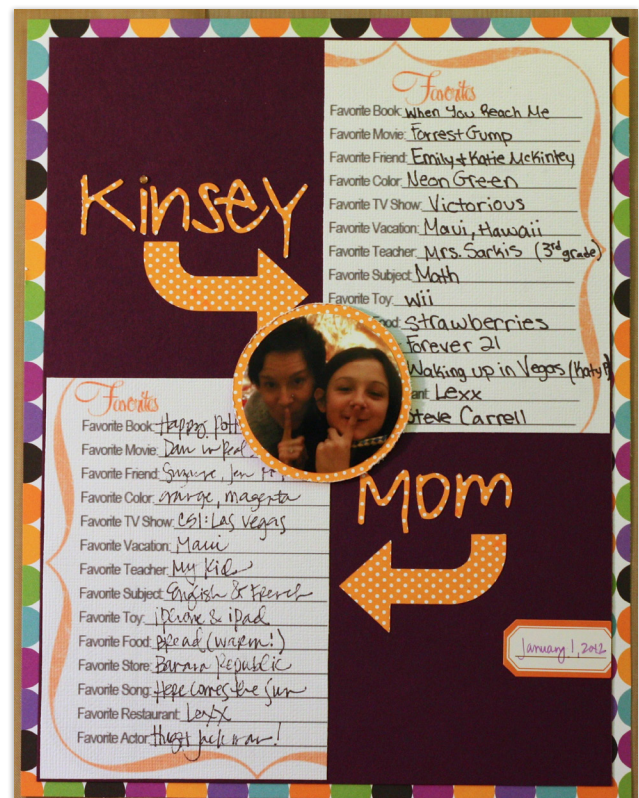 Kinsey
Favorites
Favorite Book: When You Reach Me
Favorite Movie: Forrest Gump
Favorite Friend: Emily & Katie McKinley
Favorite Color: Neon Green
Favorite TV Show: Victorious
Favorite Vacation: Maui, Hawaii
Favorite Teacher: Mrs. Sarkis (3rd grade)
Favorite Subject: Math
Favorite Toy: Wii
Food: Strawberries
Forever 21
Waking up in Vegas (Katy P)
ant: Lexx
Steve Carrell
Mom
Favorites
Favorite Book: Happy
Favorite Movie: Dan in Real
Favorite Friend: Suzune, Jen
Favorite Color: orange, magenta
Favorite TV Show: CSI: Las Vegas
Favorite Vacation: Maui
Favorite Teacher: My Kids
Favorite Subject: English & French
Favorite Toy: iPhone & iPad
Favorite Food: Bread (warm!)
Favorite Store: Banana Republic
Favorite Song: Here comes the sun
Favorite Restaurant: Lexx
Favorite Actor: Hugh Jackman!
January 1, 2012